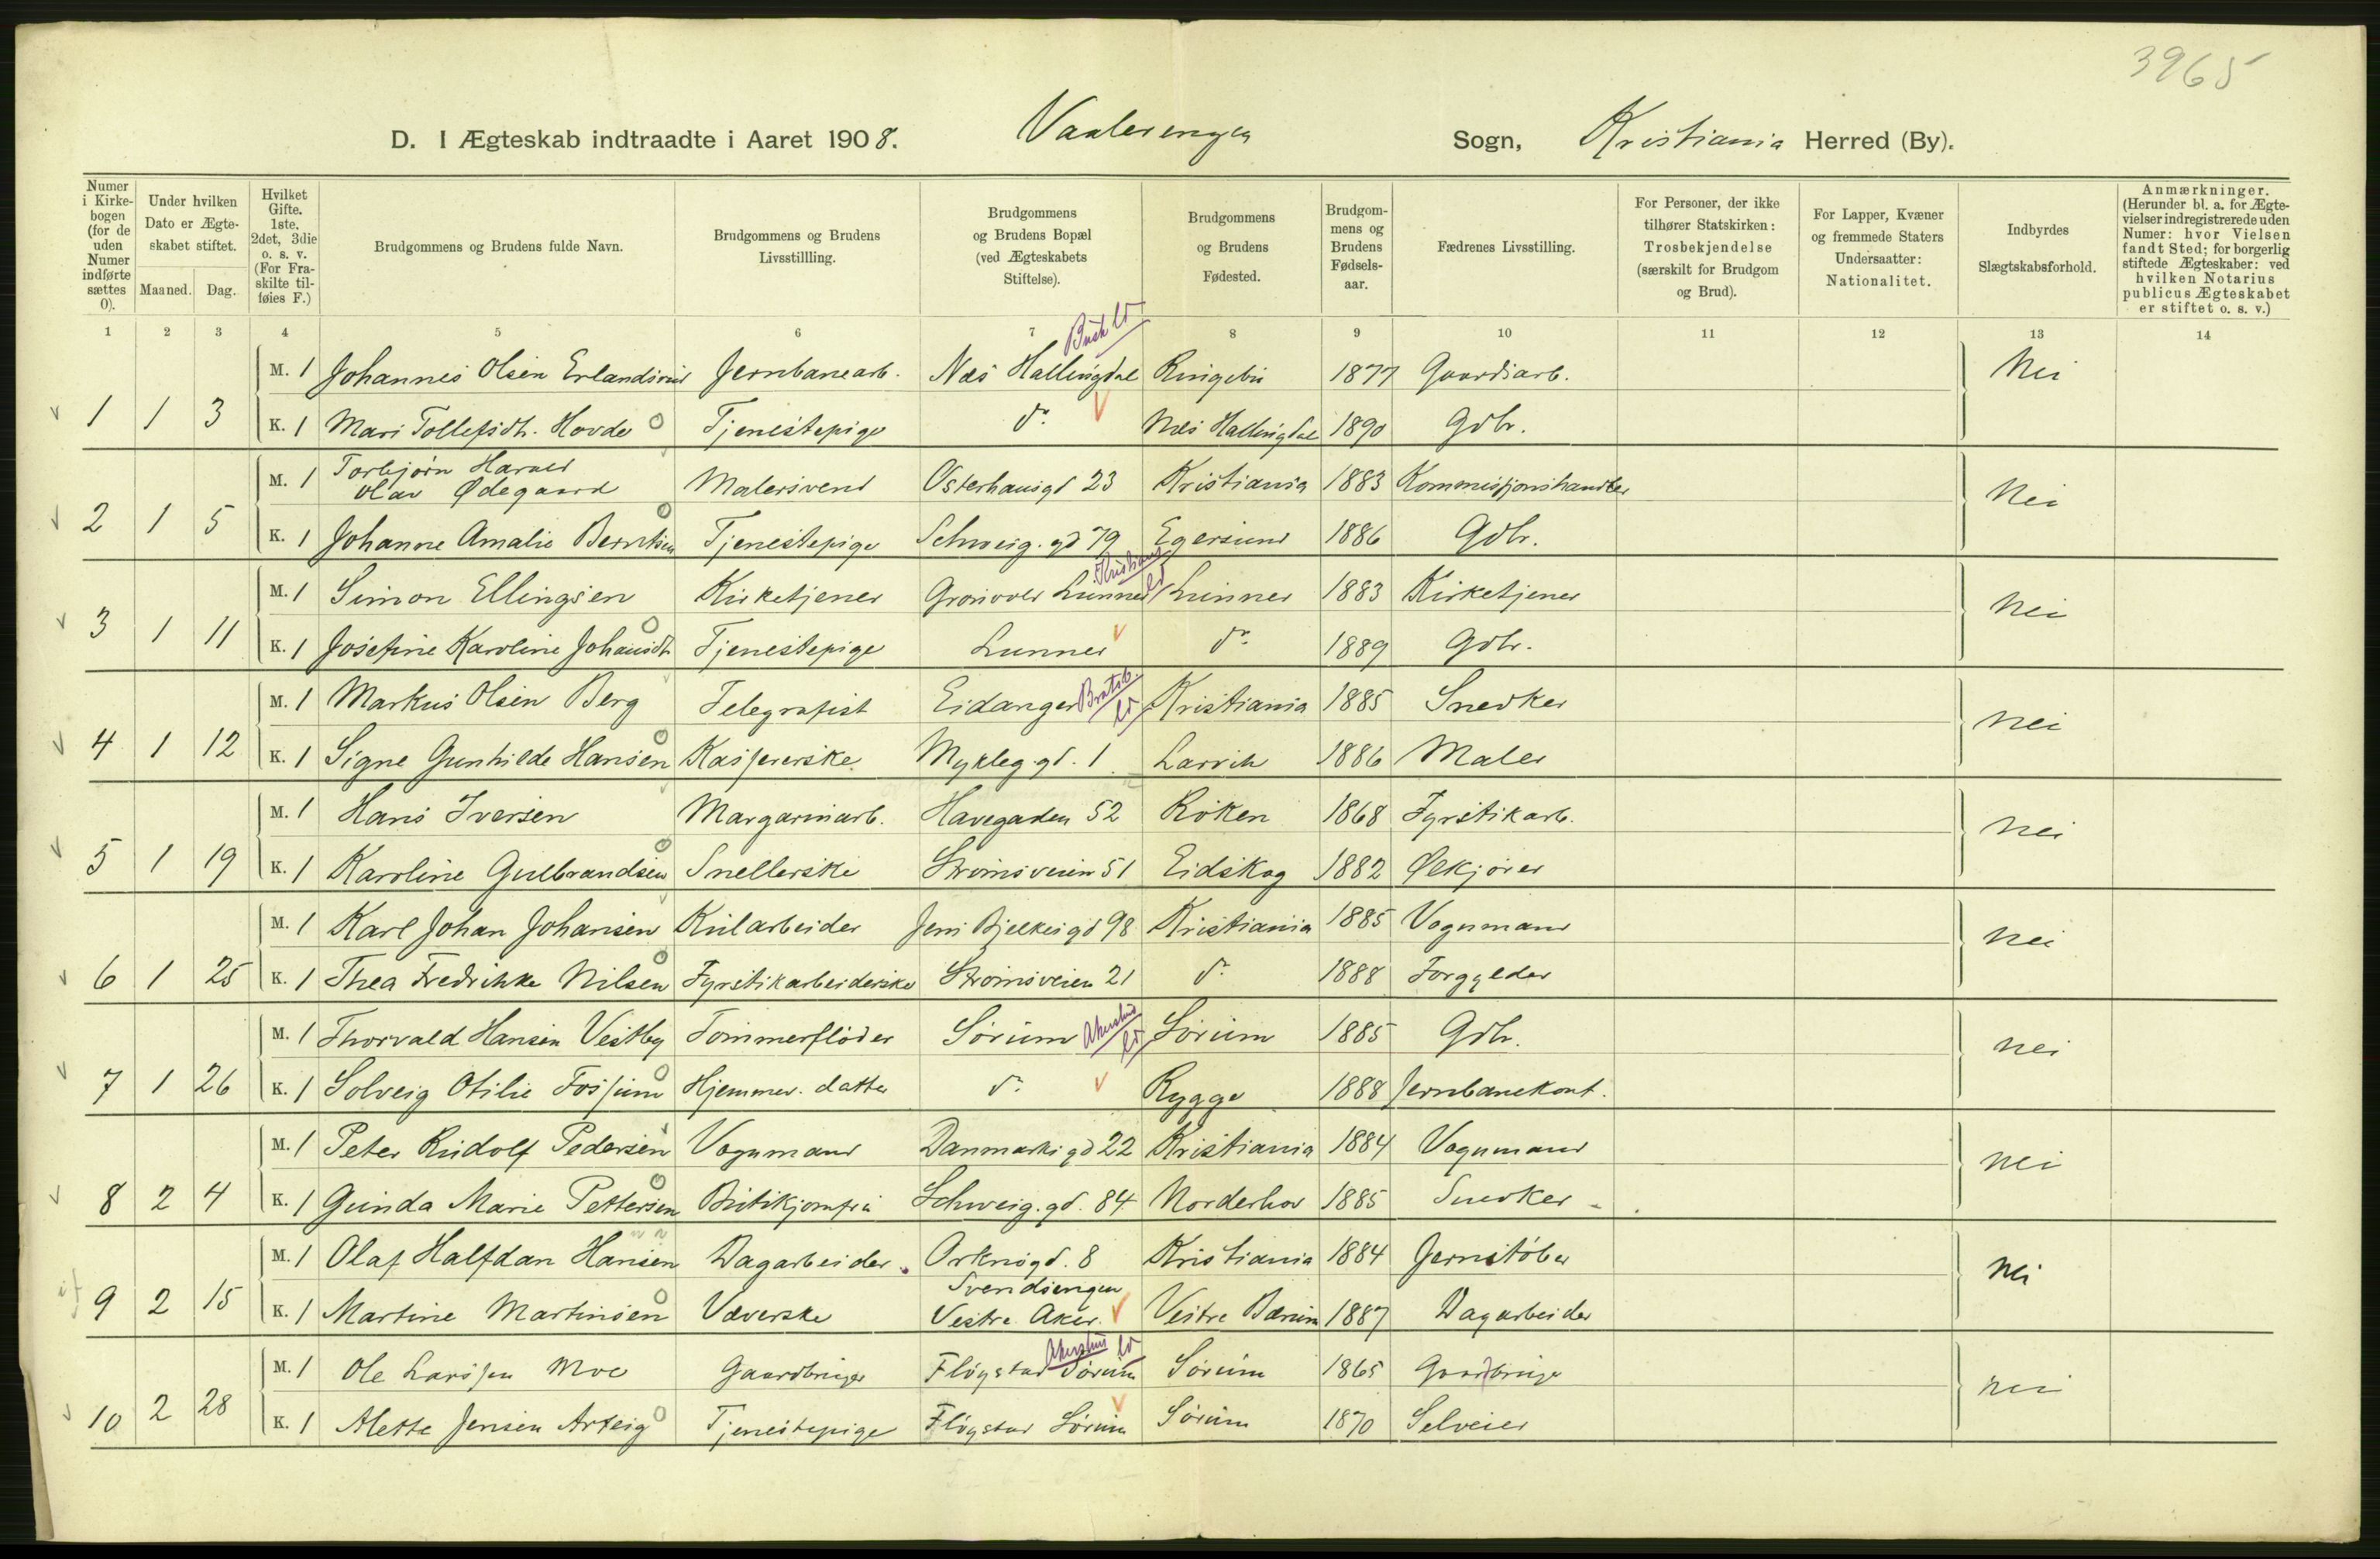 3965
D. I Ægteskab indtraadte i Aaret 1908. Vaalerengen Sogn, Kristiania Herred (By).
Numer i Kirkebogen (for de uden Numer indførte sættes 0).
Under hvilken Dato er Ægteskabet stiftet.
Maaned. Dag.
Hvilket Gifte. 1ste, 2det, 3die o. s. v. (For Fraskilte tilføies F.)
Brudgommens og Brudens fulde Navn.
Brudgommens og Brudens Livsstillling.
Brudgommens og Brudens Bopæl (ved Ægteskabets Stiftelse).
Brudgommens og Brudens Fødested.
Brudgommens og Brudens Fødselsaar.
Fædrenes Livsstilling.
For Personer, der ikke tilhører Statskirken: Trosbekjendelse (særskilt for Brudgom og Brud).
For Lapper, Kvæner og fremmede Staters Undersaatter: Nationalitet.
Indbyrdes Slægtskabsforhold.
Anmærkninger. (Herunder bl. a. for Ægtevielser indregistrerede uden Numer: hvor Vielsen fandt Sted; for borgerlig stiftede Ægteskaber: ved hvilken Notarius publicus Ægteskabet er stiftet o. s. v.)
1 2 3 4 5 6 7 8 9 10 11 12 13 14
Busk
M. 1 Johannes Olsen Erlandsrud Jernbanearb. Næs Hallingdal Ringebu 1877 Gaardsarb. Nei
1 1 3 K. 1 Mari Tollefsdtr. Hovde Tjenestepige do. Næs Hallingdal 1890 Gdbr.
M. 1 Torbjørn Harald Olav Ødegaard Malersvend Osterhausgd 23 Kristiania 1883 Kommissjonshandler Nei
2 1 5 K. 1 Johanne Amalie Berntsen Tjenestepige Schweig. gd 79 Egersund 1886 Gdbr.
Kristians
M. 1 Simon Ellingsen Kirketjener Lunner Lunner 1883 Kirketjener Nei
3 1 11 K. 1 Josefine Karoline Johansdtr Tjenestepige Lunner do. 1889 Gdbr.
M. 1 Markus Olsen Berg Telegrafist Eidanger Bratsb. Kristiania 1885 Snedker Nei
4 1 12 K. 1 Signe Gunhilde Hansen Kasjererske Mykleg. gd. 1 Larvik 1886 Maler
M. 1 Hans Iversen Margarinarb. Havegaden 52 Røken 1868 Fyrstikarb. Nei
5 1 19 K. 1 Karoline Gulbrandsen Snellerske Strømsveien 51 Eidskog 1882 Ølkjører
M. 1 Karl Johan Johansen Kularbeider Jens Bjelkesgd 98 Kristiania 1885 Vognmand Nei
6 1 25 K. 1 Thea Fredrikke Nilsen Fyrstikarbeiderske Strømsveien 21 do. 1888 Forgylder
M. 1 Thorvald Hansen Vestby Tømmerfløder Sørum Akershus Sørum 1885 Gdbr. Nei
7 1 26 K. 1 Solveig Otilie Fossum Hjemmev. datter do. Rygge 1888 Jernbanekont.
M. 1 Peter Rudolf Pedersen Vognmand Danmarksgd 22 Kristiania 1884 Vognmand Nei
8 2 4 K. 1 Gunda Marie Pettersen Butikjomfru Schweig. gd. 84 Norderhov 1885 Snedker
M. 1 Olaf Halfdan Hansen Dagarbeider Orknøgd. 8 Kristiania 1884 Jernstøber Nei
9 2 15 K. 1 Martine Martinsen Væverske Svendsengen Vestre Aker. Vestre Bærum 1887 Dagarbeider
Akershus
M. 1 Ole Larssen Moe Gaardbruger Fløgstad Sørum Sørum 1865 Gaardbruger Nei
10 2 28 K. 1 Alette Jensen Arteig Tjenestepige Fløgstad Sørum Sørum 1870 Selveier